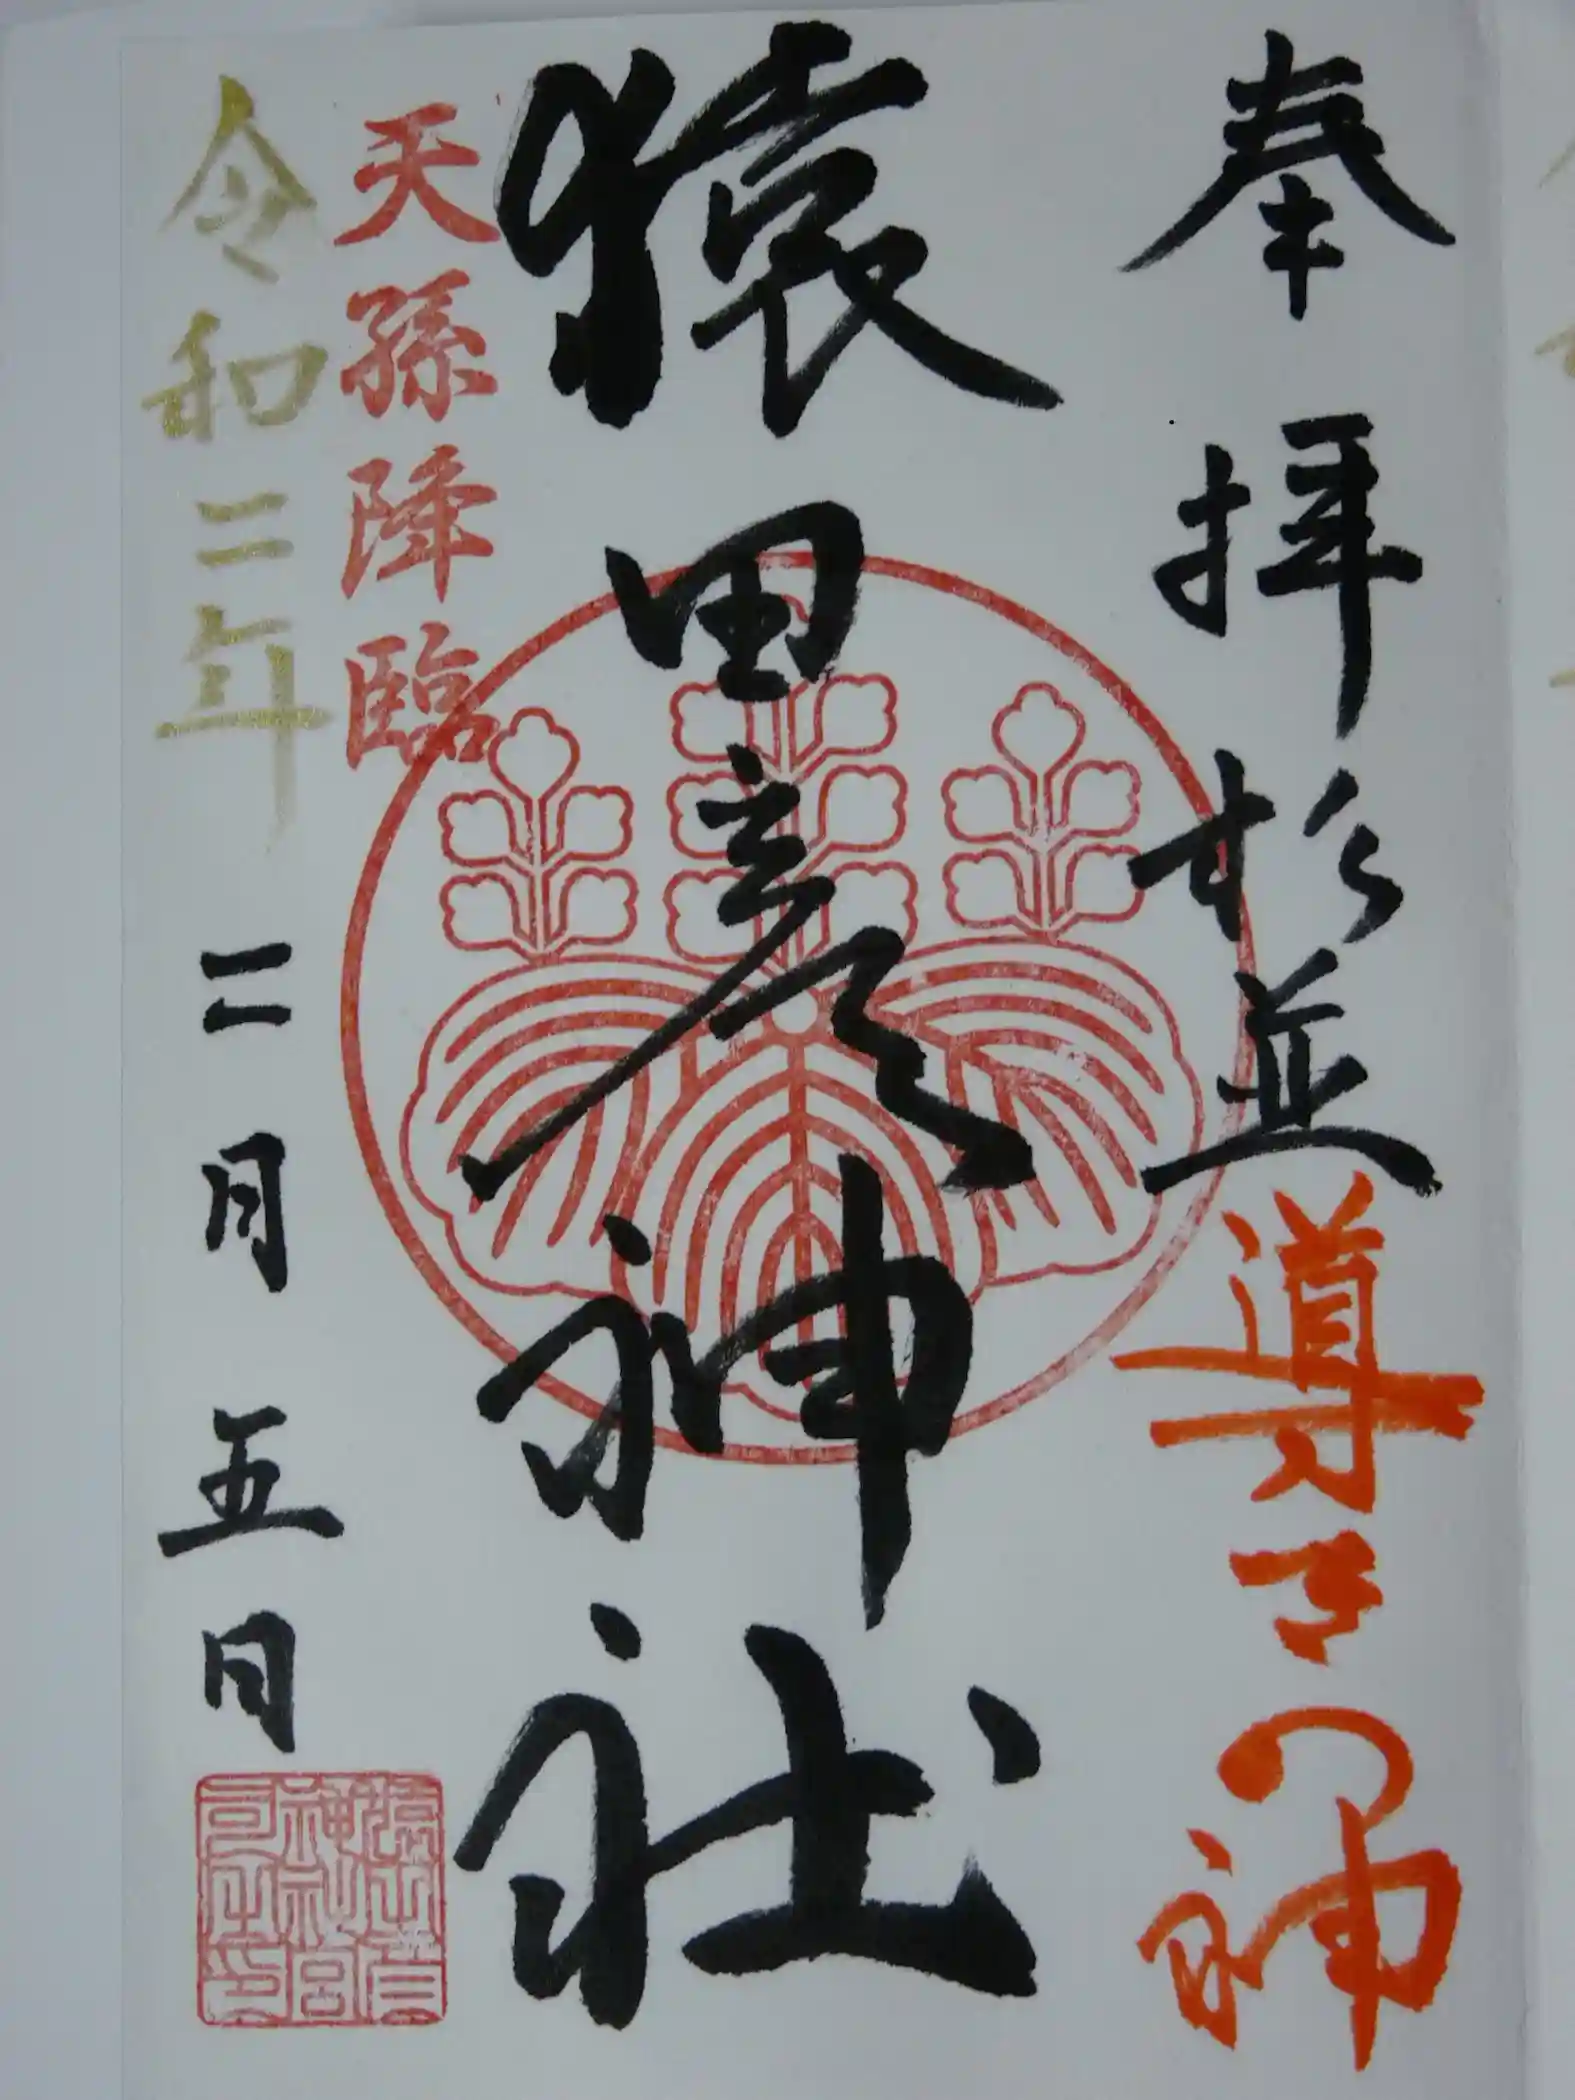 奉拝 杉並 導きの神
猿田彦神社
天孫降臨
令和二年 二月 五日
猿田彦
神社宮
司之印